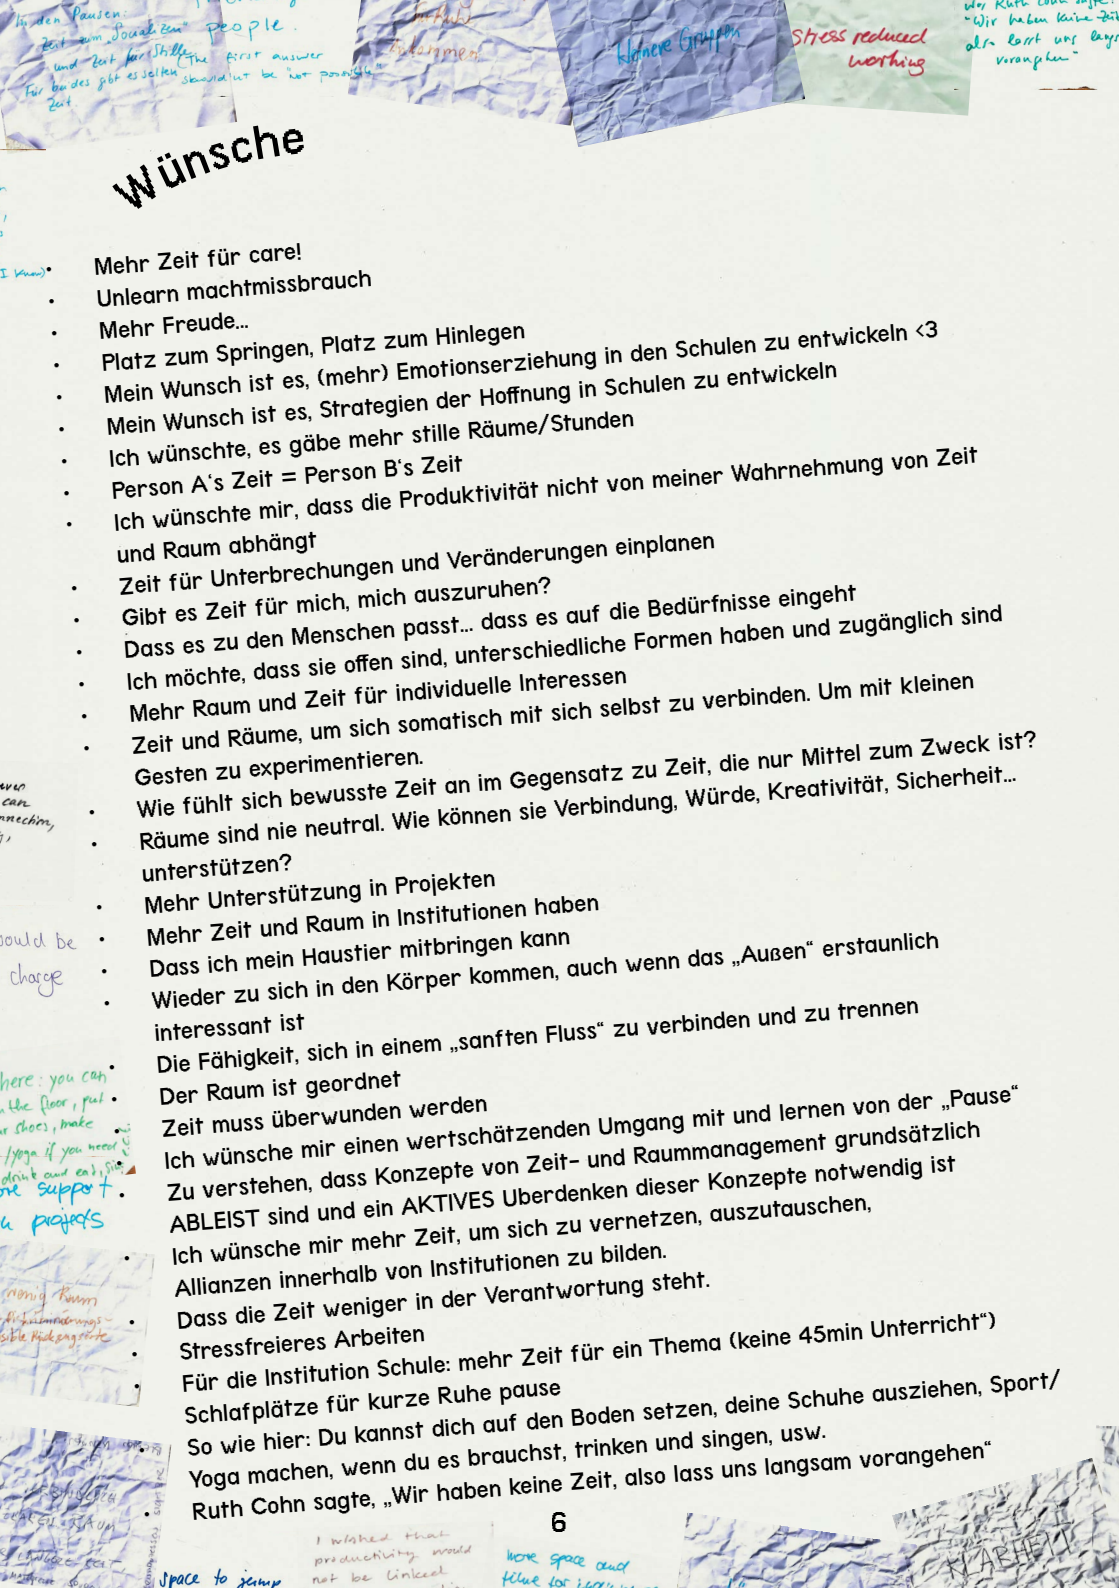 In den Pausen:
Zeit zum "Socialisen"
und Zeit für Stille
Für beides gibt es selten
Zeit
people.
(The first answer
shouldn't be "not possible"
ankommen
kleinere Gruppen
Stress reduced
working
"Wir haben keine Zeit
also lasst uns langsam
vorangehen"
Wünsche
I know)
• Mehr Zeit für care!
• Unlearn machtmissbrauch
• Mehr Freude...
• Platz zum Springen, Platz zum Hinlegen
• Mein Wunsch ist es, (mehr) Emotionserziehung in den Schulen zu entwickeln <3
• Mein Wunsch ist es, Strategien der Hoffnung in Schulen zu entwickeln
• Ich wünschte, es gäbe mehr stille Räume/Stunden
• Person A‘s Zeit = Person B‘s Zeit
• Ich wünschte mir, dass die Produktivität nicht von meiner Wahrnehmung von Zeit
und Raum abhängt
• Zeit für Unterbrechungen und Veränderungen einplanen
• Gibt es Zeit für mich, mich auszuruhen?
• Dass es zu den Menschen passt... dass es auf die Bedürfnisse eingeht
• Ich möchte, dass sie offen sind, unterschiedliche Formen haben und zugänglich sind
• Mehr Raum und Zeit für individuelle Interessen
• Zeit und Räume, um sich somatisch mit sich selbst zu verbinden. Um mit kleinen
Gesten zu experimentieren.
• Wie fühlt sich bewusste Zeit an im Gegensatz zu Zeit, die nur Mittel zum Zweck ist?
• Räume sind nie neutral. Wie können sie Verbindung, Würde, Kreativität, Sicherheit...
unterstützen?
• Mehr Unterstützung in Projekten
• Mehr Zeit und Raum in Institutionen haben
• Dass ich mein Haustier mitbringen kann
• Wieder zu sich in den Körper kommen, auch wenn das „Außen“ erstaunlich
interessant ist
• Die Fähigkeit, sich in einem „sanften Fluss“ zu verbinden und zu trennen
• Der Raum ist geordnet
• Zeit muss überwunden werden
• Ich wünsche mir einen wertschätzenden Umgang mit und lernen von der „Pause“
• Zu verstehen, dass Konzepte von Zeit- und Raummanagement grundsätzlich
ABLEIST sind und ein AKTIVES Uberdenken dieser Konzepte notwendig ist
• Ich wünsche mir mehr Zeit, um sich zu vernetzen, auszutauschen,
Allianzen innerhalb von Institutionen zu bilden.
• Dass die Zeit weniger in der Verantwortung steht.
• Stressfreieres Arbeiten
• Für die Institution Schule: mehr Zeit für ein Thema (keine 45min Unterricht“)
Schlafplätze für kurze Ruhe pause
• So wie hier: Du kannst dich auf den Boden setzen, deine Schuhe ausziehen, Sport/
Yoga machen, wenn du es brauchst, trinken und singen, usw.
• Ruth Cohn sagte, „Wir haben keine Zeit, also lass uns langsam vorangehen“
can
would be
charge
here: you can
the floor, put
shoes, make
/yoga if you need
drink and eat, sing
support
projects
wenig Raum
6
I wished that
productivity would
not be linked
space to jump
more space and
time for
KLARHEIT